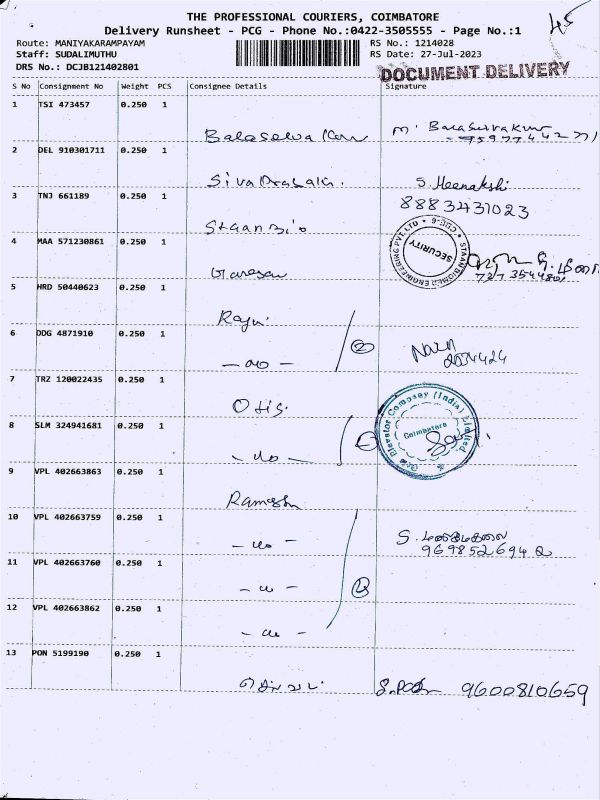 THE PROFESSIONAL COURIERS, COIMBATORE
45
Delivery Runsheet - PCG - Phone No.:0422-3505555 - Page No.:1
Route: MANIYAKARAMPAYAM
RS No.: 1214028
Staff: SUDALIMUTHU
RS Date: 27-Jul-2023
DRS No.: DCJB121402801
DOCUMENT DELIVERY
S No Consignment No Weight PCS Consignee Details Signature
1 TSI 473457 0.250 1
2 DEL 910301711 0.250 1
S. Meenakshi
3 TNJ 661189 0.250 1
8883431023
Staan Bio
STAAN BIOMED ENGINEERING PVT. LTD
SECURITY
4 MAA 571230861 0.250 1
5 HRD 50440623 0.250 1
Raju
6 DDG 4871910 0.250 1
2
- do -
7 TRZ 120022435 0.250 1
Otis
Otis Elevator Company (India) Limited
Coimbatore
8 SLM 324941681 0.250 1
- do -
9 VPL 402663863 0.250 1
Ramesh
10 VPL 402663759 0.250 1
- do -
9698526942
11 VPL 402663760 0.250 1
- do -
12 VPL 402663862 0.250 1
- do -
13 PON 5199190 0.250 1
9600810659